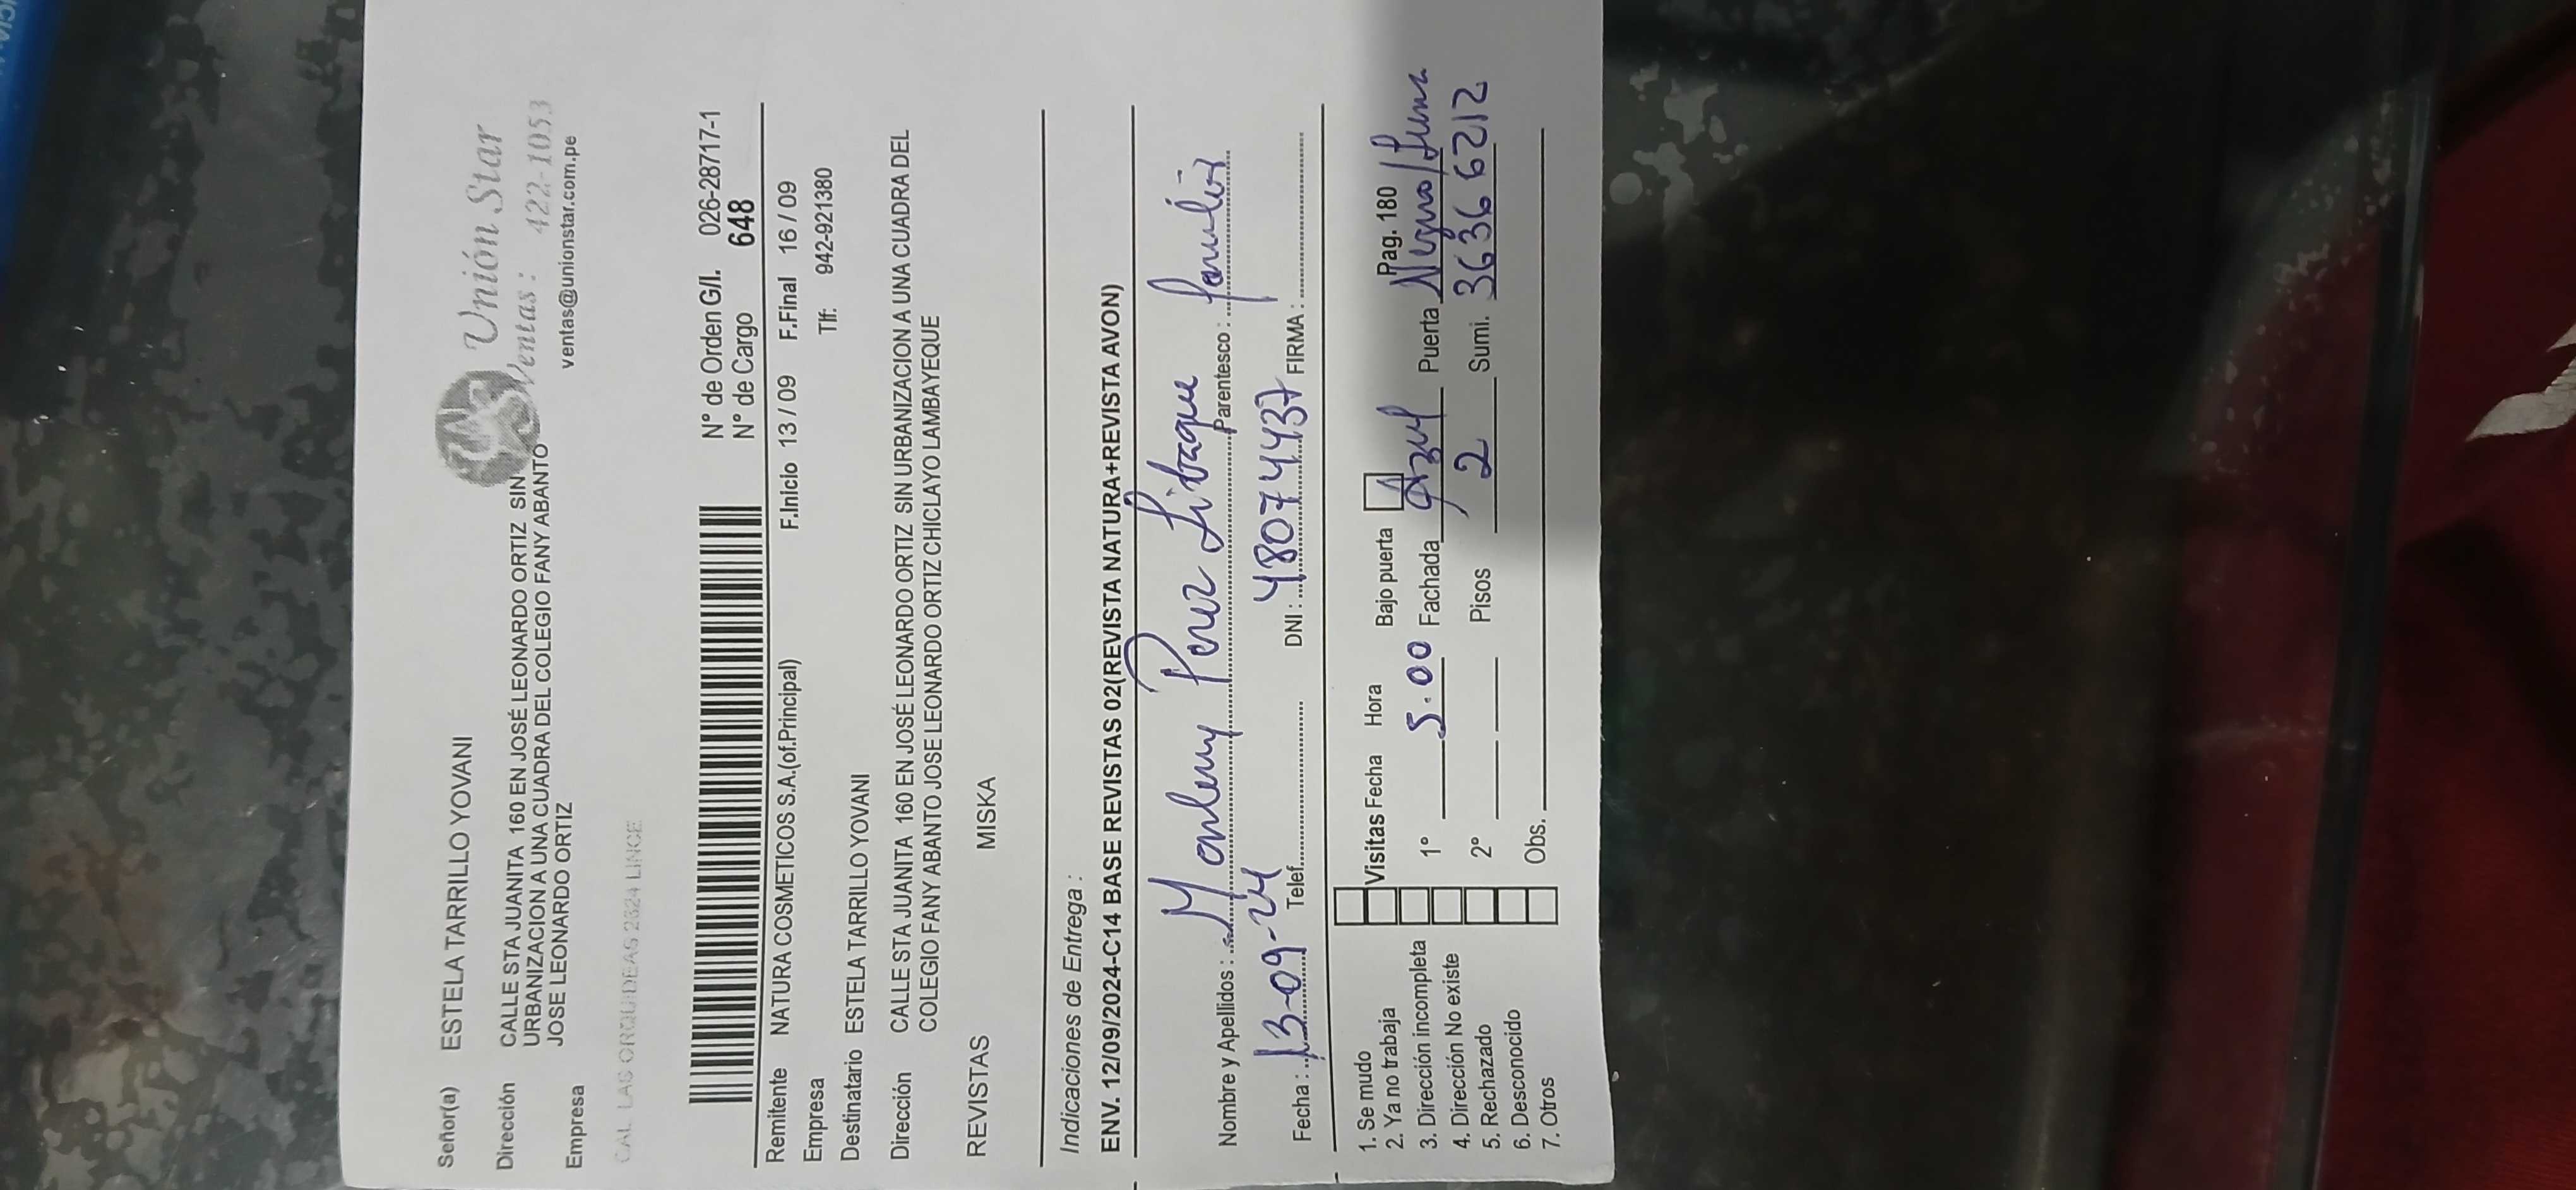 Señor(a) ESTELA TARRILLO YOVANI
Unión Star
Dirección CALLE STA JUANITA 160 EN JOSÉ LEONARDO ORTIZ SIN
Ventas : 422-1053
URBANIZACION A UNA CUADRA DEL COLEGIO FANY ABANTO
JOSE LEONARDO ORTIZ
ventas@unionstar.com.pe
Empresa
CAL LAS ORQUIDEAS 2324 LINCE
N° de Orden G/I. 026-28717-1
N° de Cargo 648
Remitente NATURA COSMETICOS S.A.(of.Principal) F.Inicio 13 / 09 F.Final 16 / 09
Empresa Tlf: 942-921380
Destinatario ESTELA TARRILLO YOVANI
Dirección CALLE STA JUANITA 160 EN JOSÉ LEONARDO ORTIZ SIN URBANIZACION A UNA CUADRA DEL
COLEGIO FANY ABANTO JOSE LEONARDO ORTIZ CHICLAYO LAMBAYEQUE
REVISTAS MISKA
Indicaciones de Entrega :
ENV. 12/09/2024-C14 BASE REVISTAS 02(REVISTA NATURA+REVISTA AVON)
Nombre y Apellidos : Perez Parentesco : familiar
Fecha : 13-09-24 Telef. DNI : 48074437 FIRMA :
1. Se mudo
2. Ya no trabaja
3. Dirección incompleta
4. Dirección No existe
5. Rechazado
6. Desconocido
7. Otros
Visitas Fecha Hora Bajo puerta Pag. 180
1° 5.00 Fachada Azul Puerta Negro/
2° Pisos 2 Sumi. 36366212
Obs.